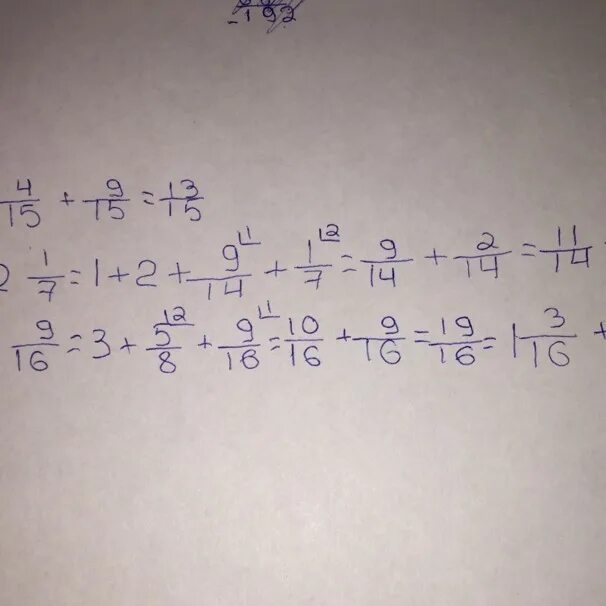 -192
4/15 + 9/15 = 13/15
2 1/7 = 1 + 2 + 9/14 ⌊1 + 1/7 ⌊2 = 9/14 + 2/14 = 11/14 +
9/16 = 3 + 5/8 ⌊2 + 9/16 ⌊1 = 10/16 + 9/16 = 19/16 = 1 3/16 +